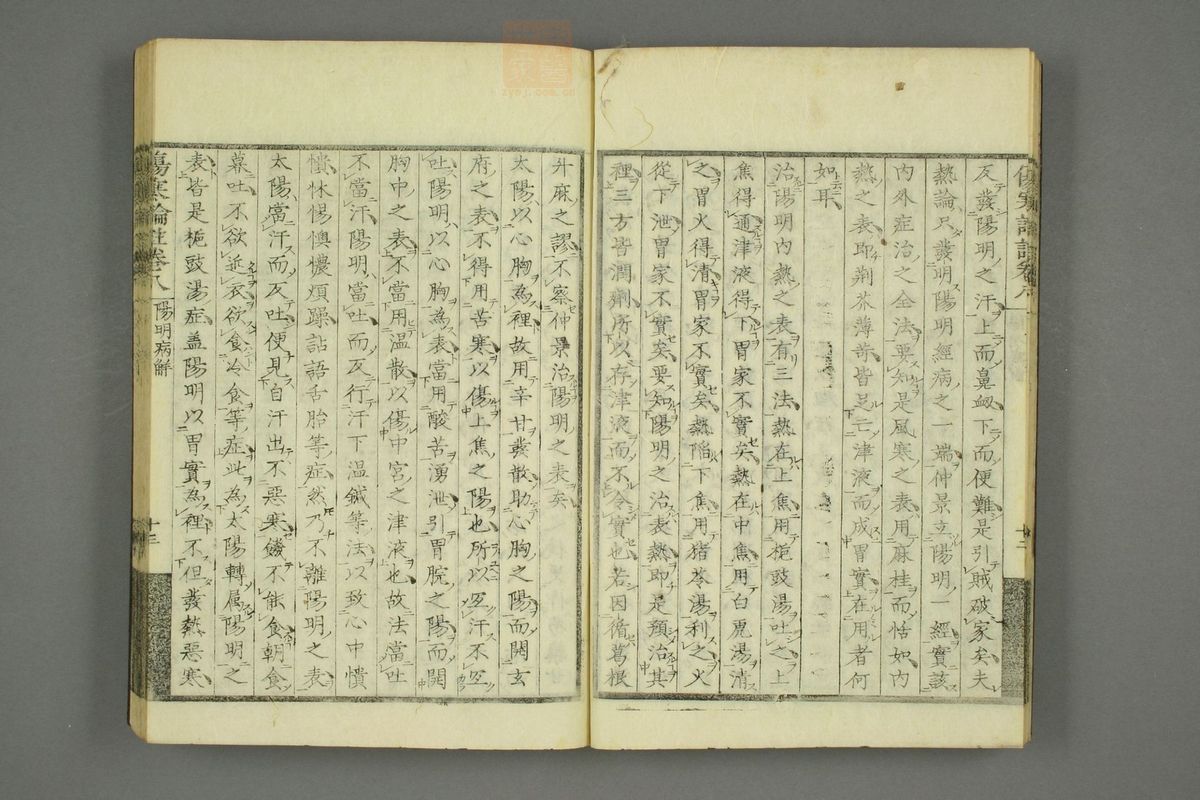 反發陽明之汗上而鼻衂下而便難是引賊破家矣夫
熱論只發明陽明經病之一端仲景立陽明一經實該
内外症治之全法要知是風寒之表用麻桂而恬如内
熱之表即荆芥薄荷皆足亡津液而成胃實在用者何
如耳
治陽明内熱之表有三法熱在上焦用梔豉湯吐之上
焦得通津液得下胃家不實矣熱在中焦用白虎湯清
之胃火得清胃家不實矣熱陷下焦用猪苓湯利之火
從下泄胃家不實矣要知陽明之治表熱即是預治其
裡三方皆潤劑所以存津液而不令實也若因循葛根
升麻之謬不察仲景治陽明之表矣
太陽以心胸為裡故用辛甘發散助心胸之陽而開玄
府之表不得用苦寒以傷上焦之陽也所以宜汗不宜
吐陽明以心胸為表當用酸苦湧泄引胃脘之陽而開
胸中之表不當用温散以傷中宮之津液也故法當吐
不當汗陽明當吐而反行汗下温鍼等法以致心中憒
憒怵惕懊憹煩躁詀語舌胎等症然乃不離陽明之表
太陽當汗而反吐便見自汗出不惡寒饑不能食朝食
暮吐不欲近衣欲食冷食等症此為太陽轉属陽明之
表皆是梔豉湯症盖陽明以胃實為裡不但發熱惡寒
傷寒論註卷八 陽明病解 十三